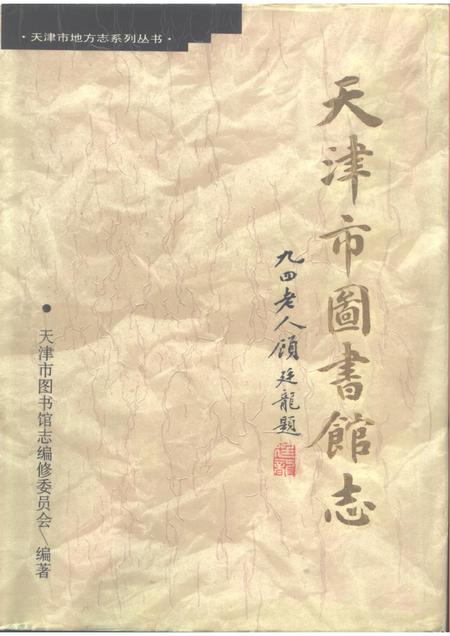 ·天津市地方志系列丛书·
天津市圖書館志
九四老人顧廷龍題
●天津市图书馆志编修委员会\编著